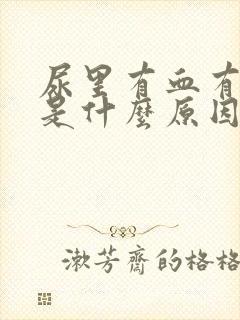 尿里有血有
是什麼原因
漱芳齋的格格